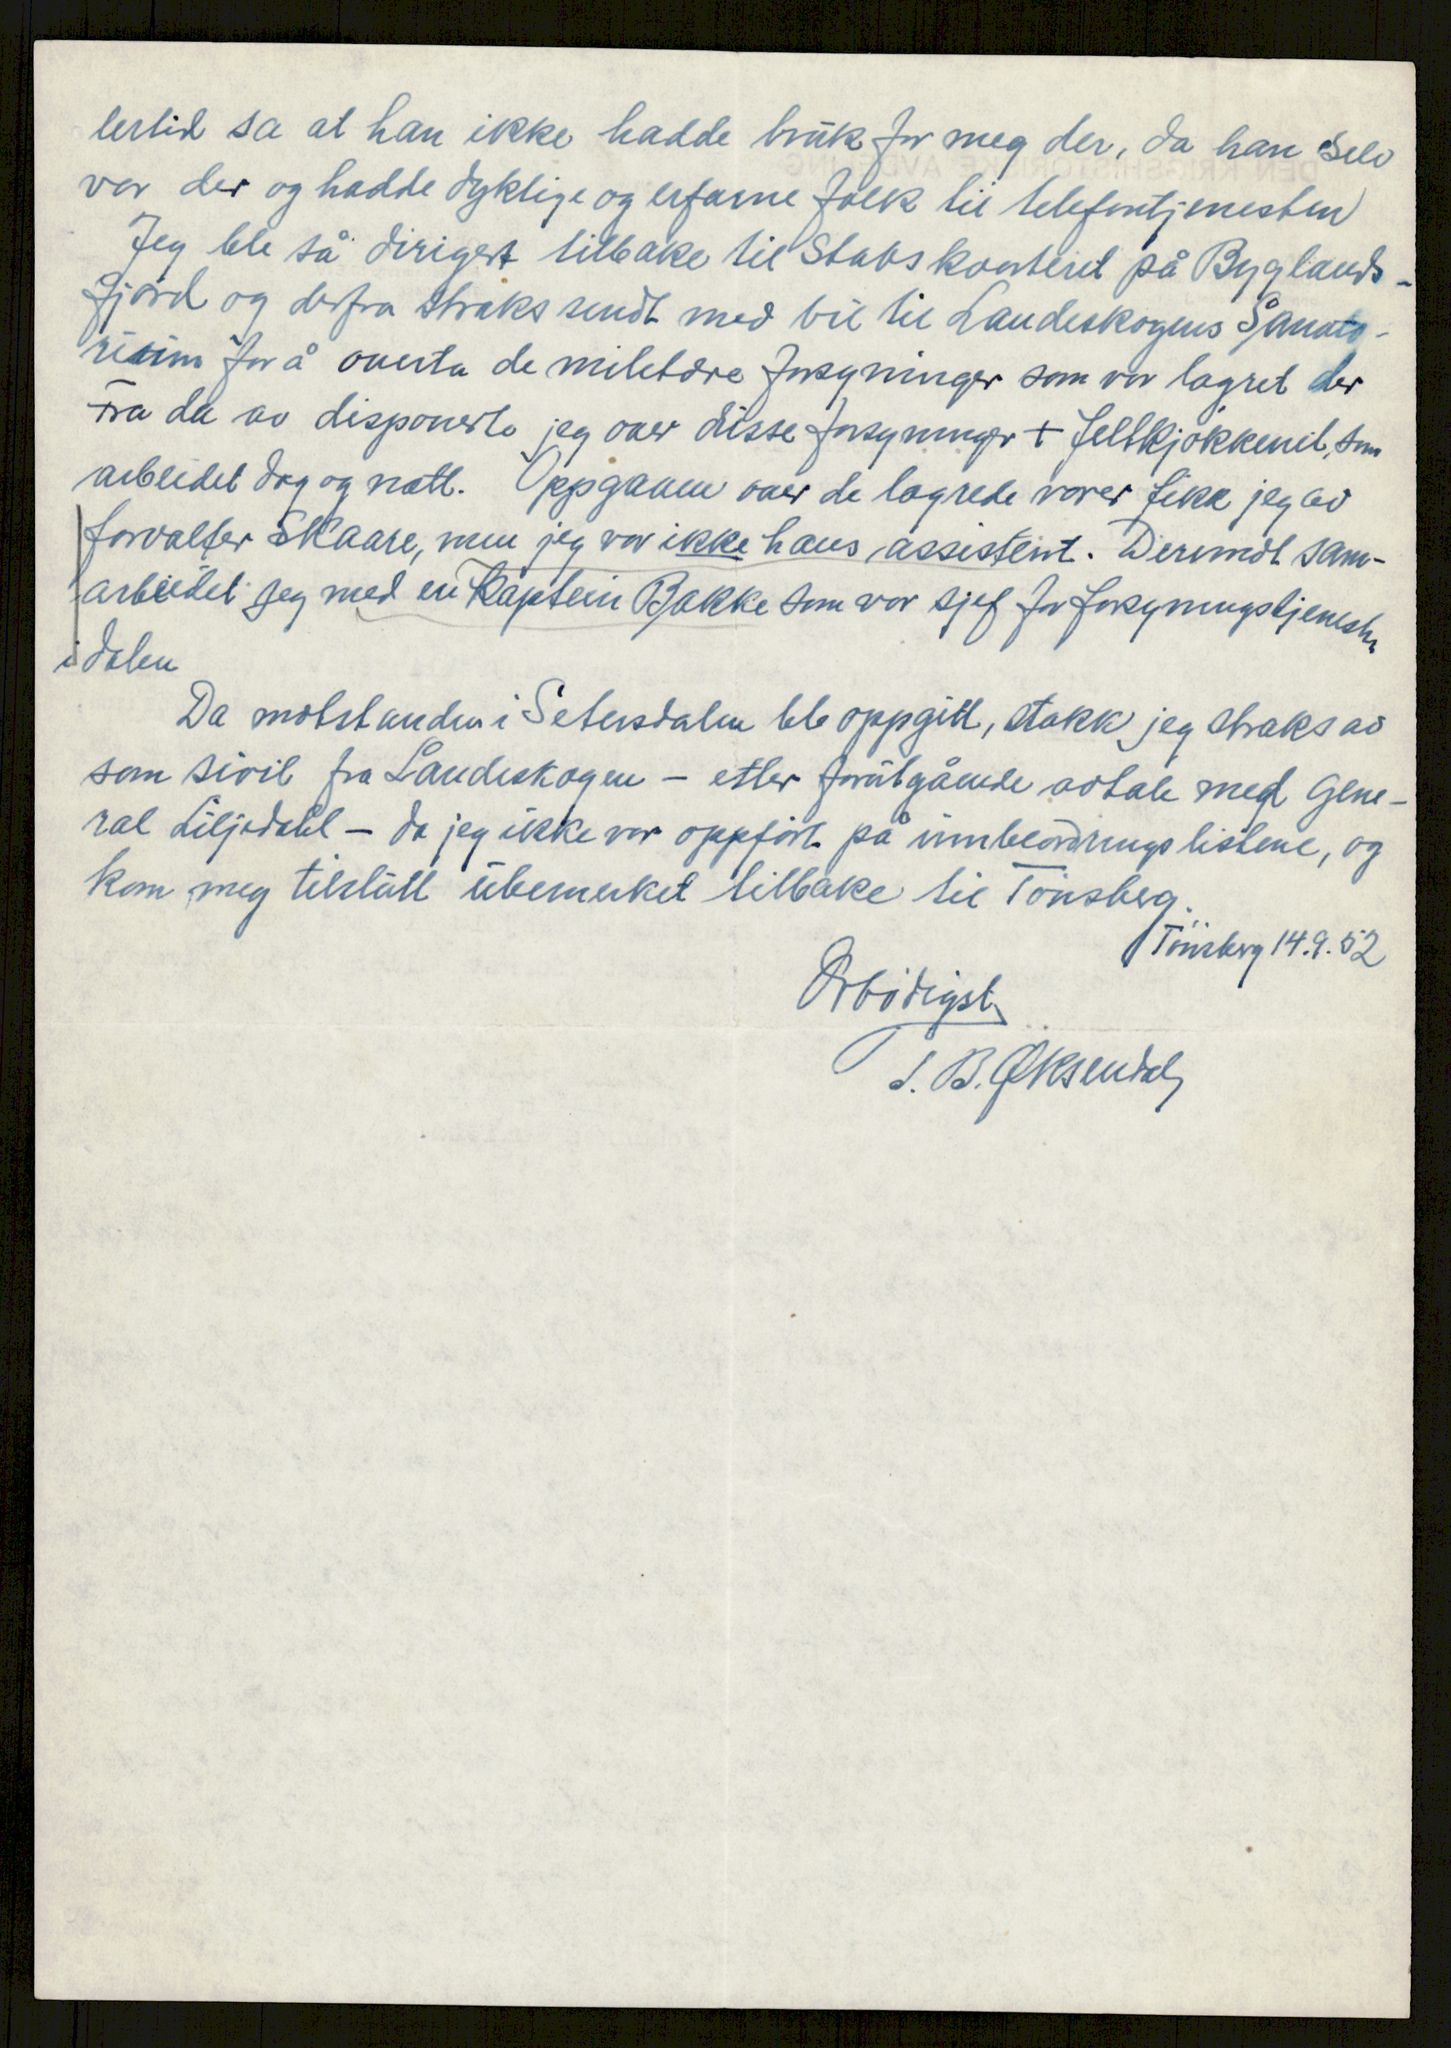 lertid sa at han ikke hadde bruk for meg der, da han selv
var der og hadde dyktige og erfarne folk til telefontjenesten
Jeg ble så dirigert tilbake til Stabskvarteret på Byglands-
fjord og derfra straks sendt med bil til Landeskogens Sanato-
rium for å overta de militære forsyninger som var lagret der
Fra da av disponerte jeg over disse forsyninger + feltkjøkkenet, som
arbeidet dag og natt. Oppgaven over de lagrede varer fikk jeg av
forvalter Skaare, men jeg var ikke hans assistent. Derimot sam-
arbeidet jeg med en Kaptein Bakke som var sjef for forsyningstjenesten
i dalen
Da motstanden i Setesdalen ble oppgitt, stakk jeg straks av
som sivil fra Landeskogen - etter forutgående avtale med Gene-
ral Liljedahl - da jeg ikke var oppført på innbeordringslistene, og
kom meg tilslutt ubemerket tilbake til Tønsberg.
Tönsberg 14.9.52
Ærbødigst
S. B. Øksendal